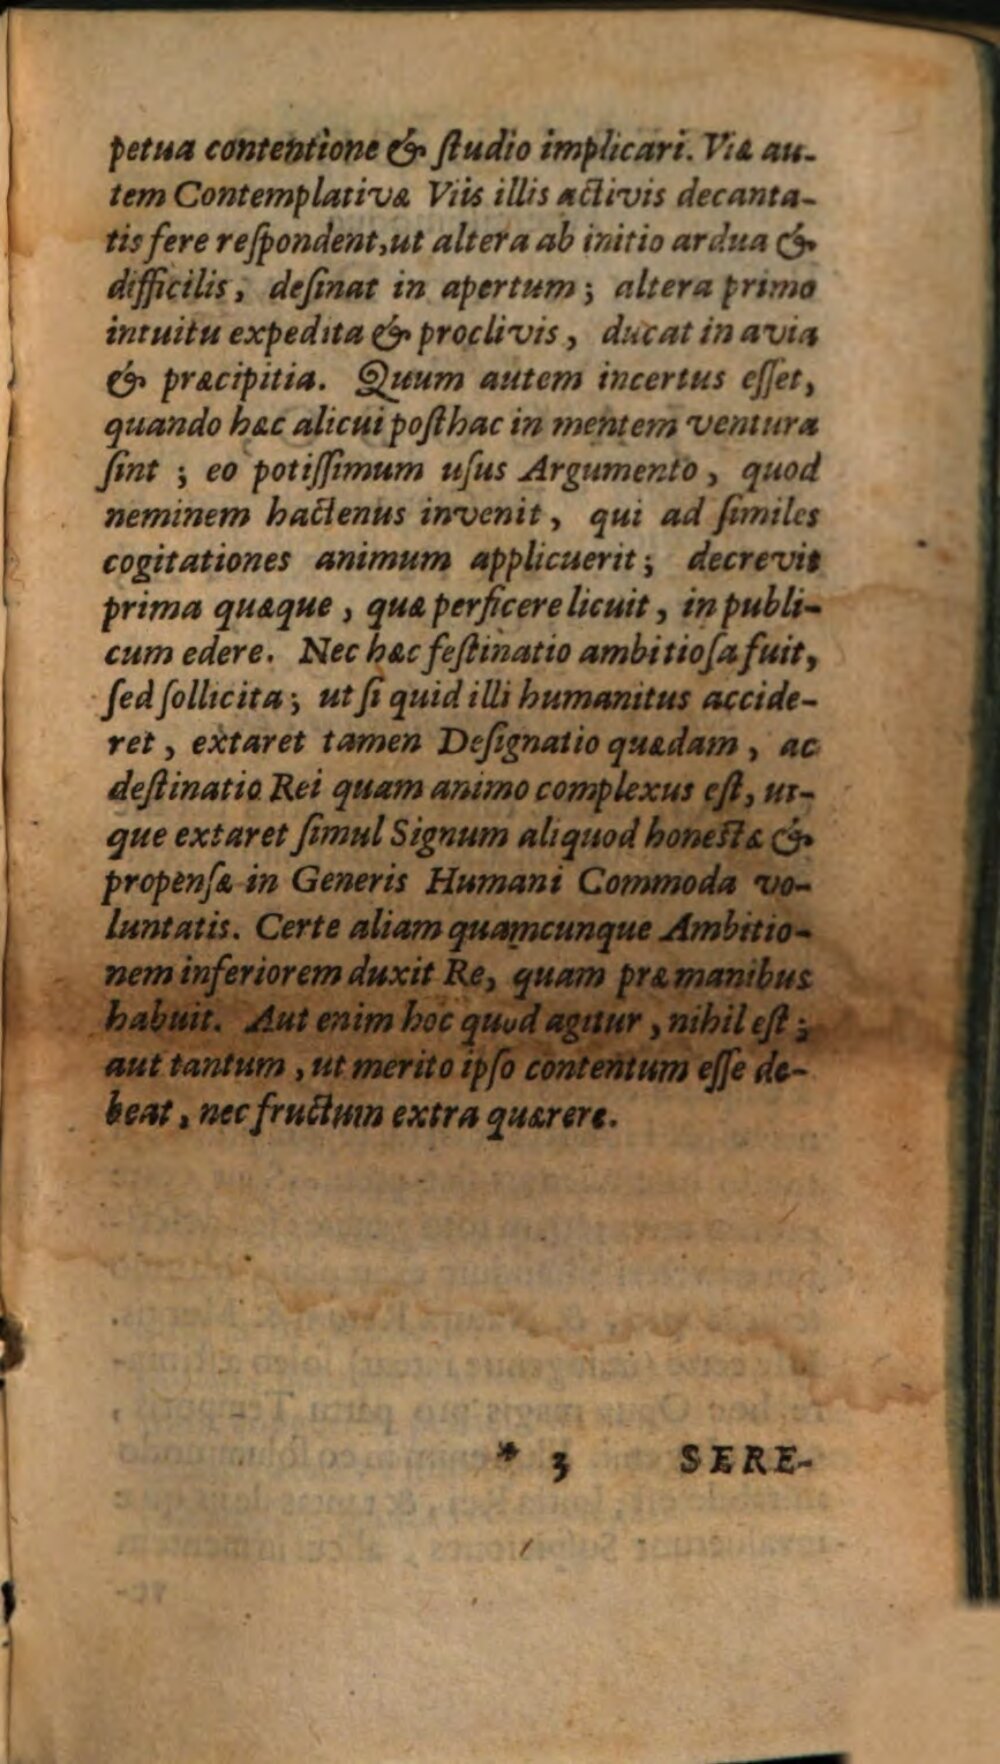 petua contentione & ſtudio implicari. Viæ au-
tem Contemplativæ Viis illis activis decanta-
tis fere reſpondent, ut altera ab initio ardua &
difficilis, deſinat in apertum; altera primo
intuitu expedita & proclivis, ducat in avia
& præcipitia. Quum autem incertus eſſet,
quando hæc alicui poſthac in mentem ventura
ſint; eo potiſſimum uſus Argumento, quod
neminem hactenus invenit, qui ad ſimiles
cogitationes animum applicuerit; decrevit
prima quæque, quæ perficere licuit, in publi-
cum edere. Nec hæc feſtinatio ambitioſa fuit,
ſed ſollicita; ut ſi quid illi humanitus accide-
ret, extaret tamen Deſignatio quædam, ac
deſtinatio Rei quam animo complexus eſt, ut-
que extaret ſimul Signum aliquod honeſtæ &
propenſæ in Generis Humani Commoda vo-
luntatis. Certe aliam quamcunque Ambitio-
nem inferiorem duxit Re, quam præ manibus
habuit. Aut enim hoc quod agitur, nihil eſt;
aut tantum, ut merito ipſo contentum eſſe de-
beat, nec fructum extra quærere.
* 3 SERE-